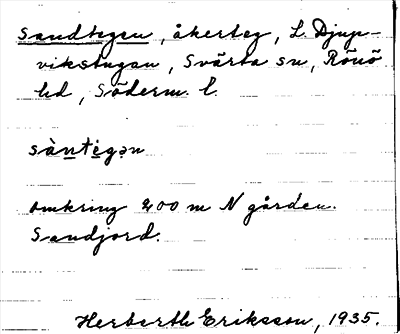 Sandtegen, åkerteg, L. Djup-
vikstugan, Svärta sn, Rönö
hd, Söderm. l.
sàntègən
omkring 200 m N gården.
Sandjord.
Herberth Eriksson, 1935.